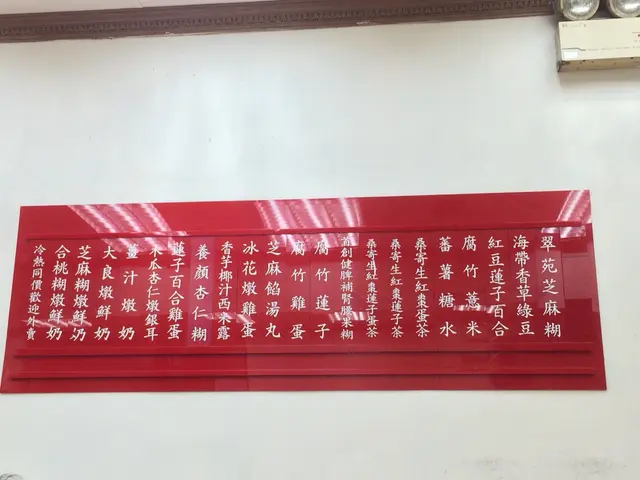 翠苑芝麻糊
海帶香草綠豆
紅豆蓮子百合
腐竹薏米
蕃薯糖水
桑寄生紅棗蛋茶
桑寄生紅棗蓮子茶
桑寄生紅棗蓮子蛋茶
首創健脾補腎腰果糊
腐竹蓮子
腐竹雞蛋
芝麻餡湯丸
冰花燉雞蛋
香芋椰汁西米露
養顏杏仁糊
蓮子百合雞蛋
木瓜杏仁燉銀耳
薑汁燉奶
大良燉鮮奶
芝麻糊燉鮮奶
合桃糊燉鮮奶
冷熱同價歡迎外賣